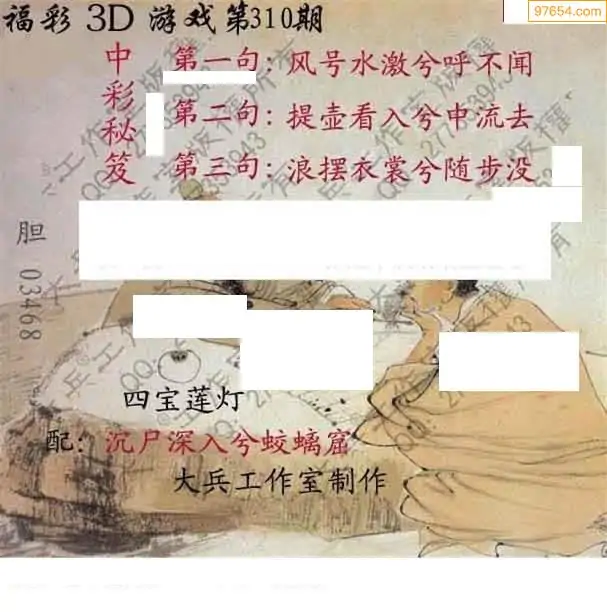 97654.com
福彩 3D 游戏第310期
中彩秘笈
第一句：风号水激兮呼不闻
第二句：提壶看入兮中流去
第三句：浪摆衣裳兮随步没
胆 03468
四宝莲灯
配：沉尸深入兮蛟螭窟
大兵工作室制作